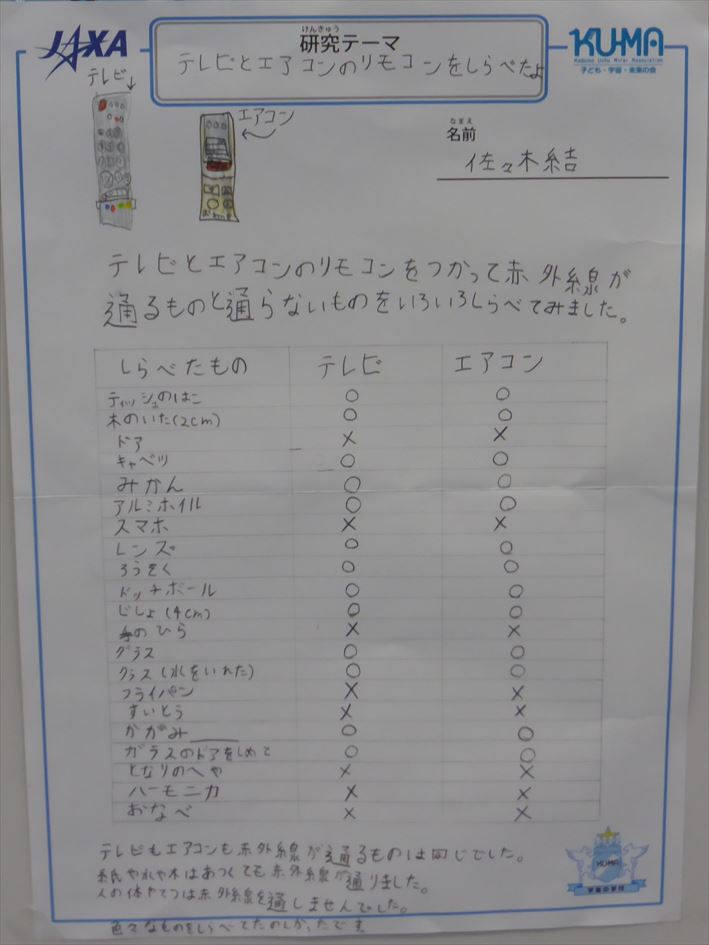 JAXA
けんきゅう
研究テーマ
テレビとエアコンのリモコンをしらべたよ
KU-MA
Kodomo Uchu Mirai Association
子ども・宇宙・未来の会
テレビ↓
エアコン
なまえ
名前
佐々木結
テレビとエアコンのリモコンをつかって赤外線が
通るものと通らないものをいろいろしらべてみました。
しらべたもの テレビ エアコン
ティッシュのはこ ○ ○
木のいた(2cm) ○ ○
ドア × ×
キャベツ ○ ○
みかん ○ ○
アルミホイル ○ ○
スマホ × ×
レンズ ○ ○
ろうそく ○ ○
ドッチボール ○ ○
じしょ(4cm) ○ ○
手のひら × ×
グラス ○ ○
グラス(水をいれた) ○ ○
フライパン × ×
すいとう × ×
かがみ ○ ○
ガラスのドアをしめて ○ ○
となりのへや × ×
ハーモニカ × ×
おなべ × ×
テレビもエアコンも赤外線が通るものは同じでした。
紙や水や木はあつくても赤外線が通りました。
人の体やてつは赤外線を通しませんでした。
色々なものをしらべてたのしかったです
KU-MA
宇宙の学校